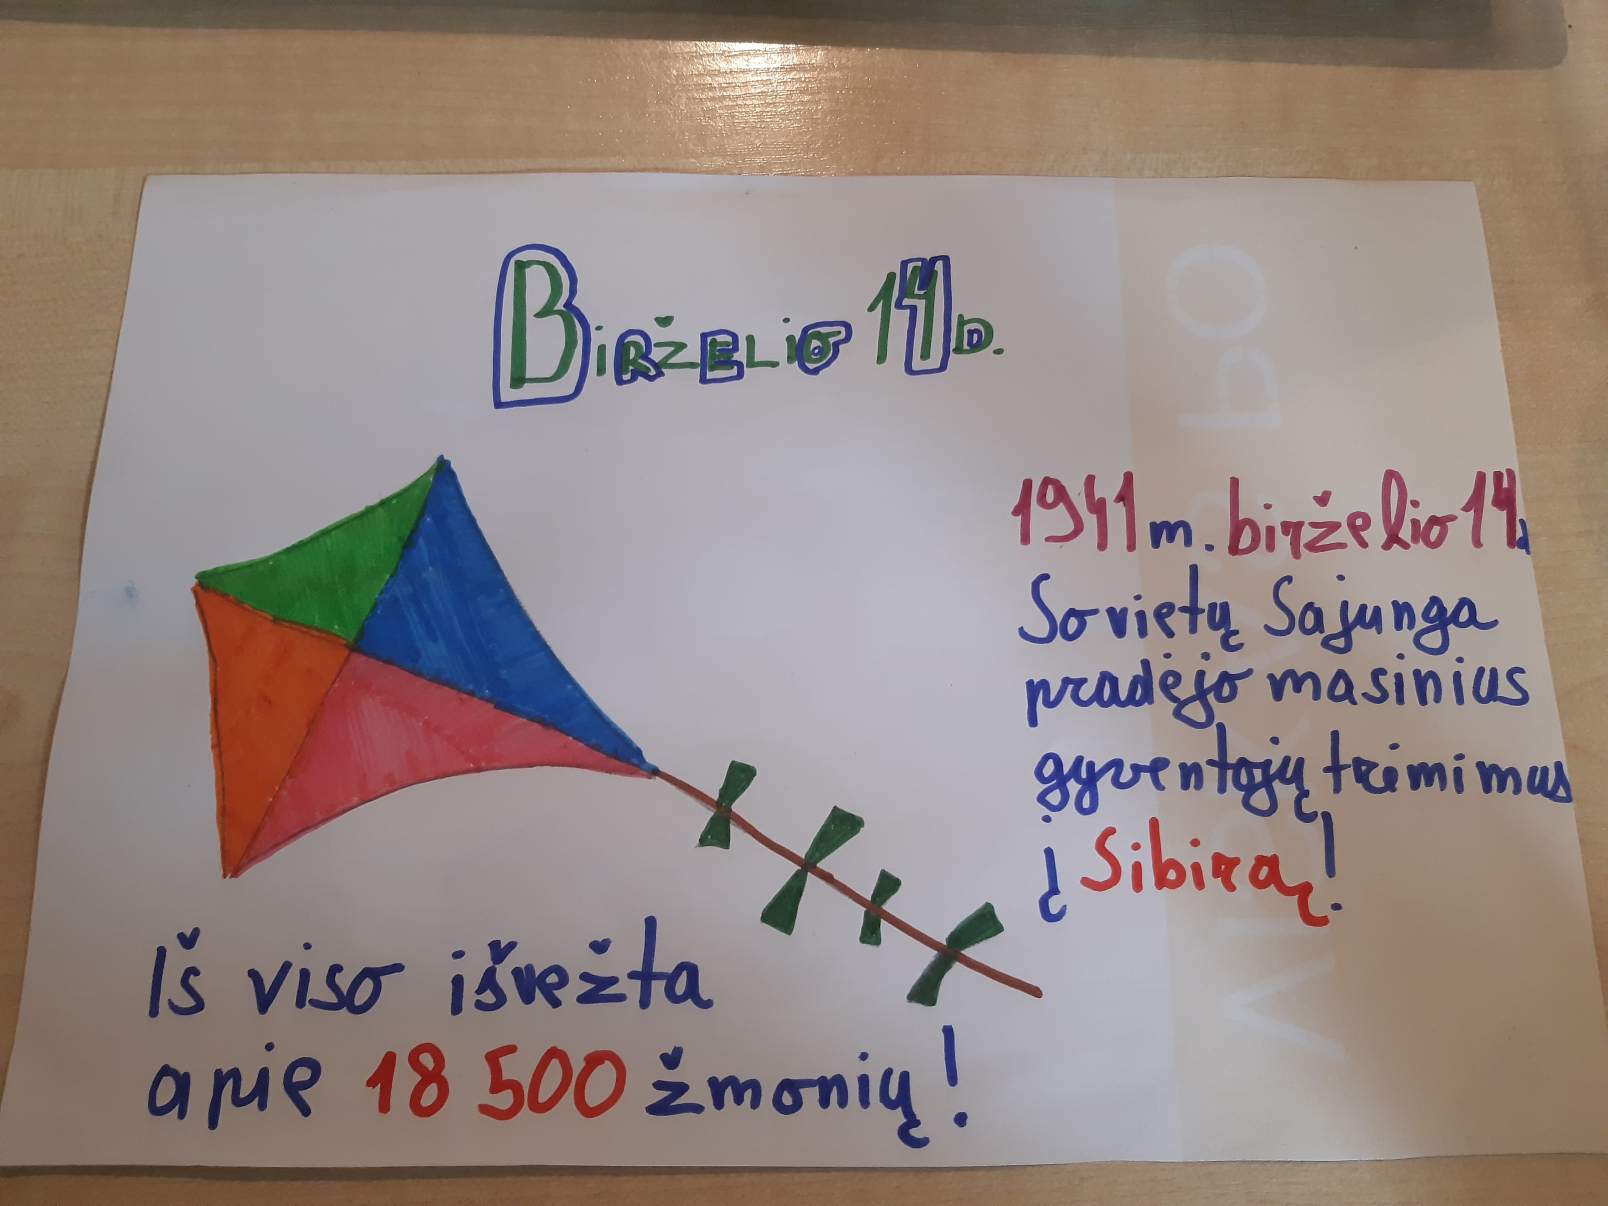 Birželio 14 d.
1941 m. birželio 14 d
Sovietų Sajunga
pradėjo masinius
gyventojų trimimus
į Sibirą!
Iš viso išvežta
apie 18 500 žmonių!